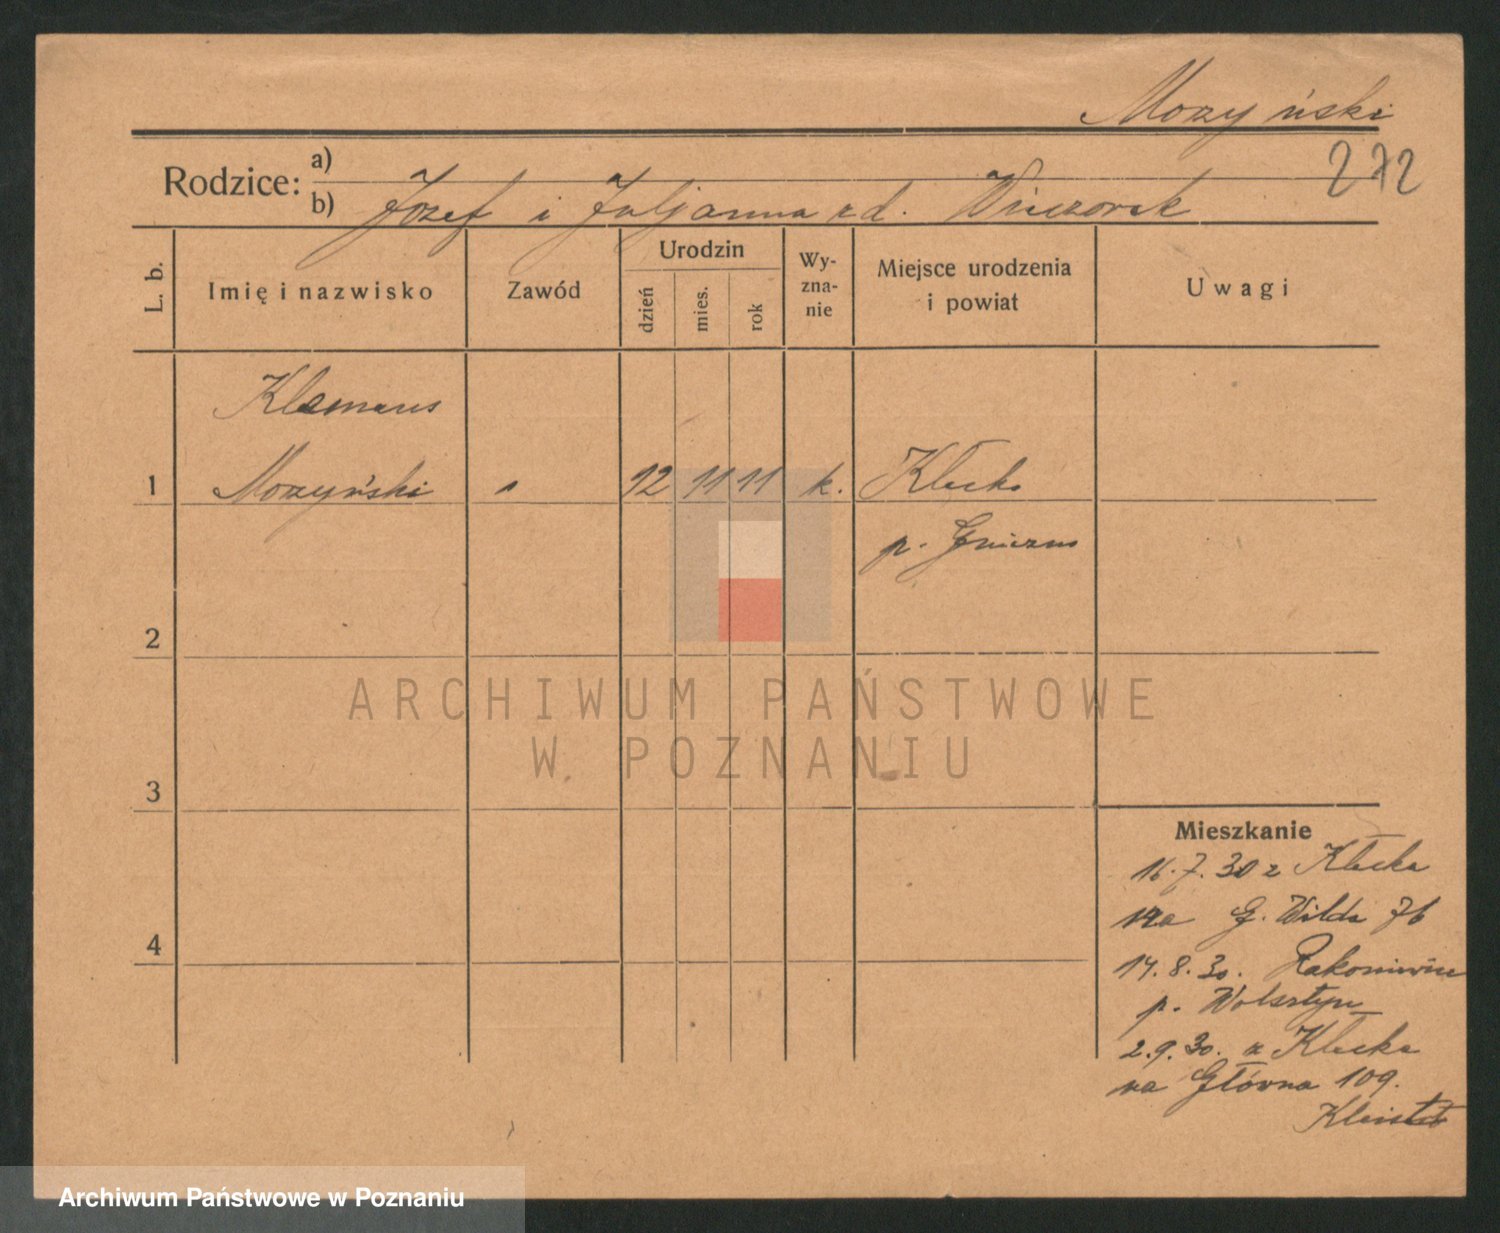 Mozyński
272
Rodzice: a)
b) Józef i Juljanna zd. Wieczorek
L. b.
Imię i nazwisko
Zawód
Urodzin
dzień
mies.
rok
Wy-
zna-
nie
Miejsce urodzenia
i powiat
Uwagi
Klemens
1 Mozyński 12 11 11 k. Kłecko
p. Gniezno
2
3
4
Mieszkanie
16.7.30 z Kłecka
na G. Wilda 76
14.8.30. Rakoniewice
p. Wolsztyn
2.9.30. z Kłecka
na Główna 109.
ARCHIWUM PAŃSTWOWE
W POZNANIU
Archiwum Państwowe w Poznaniu